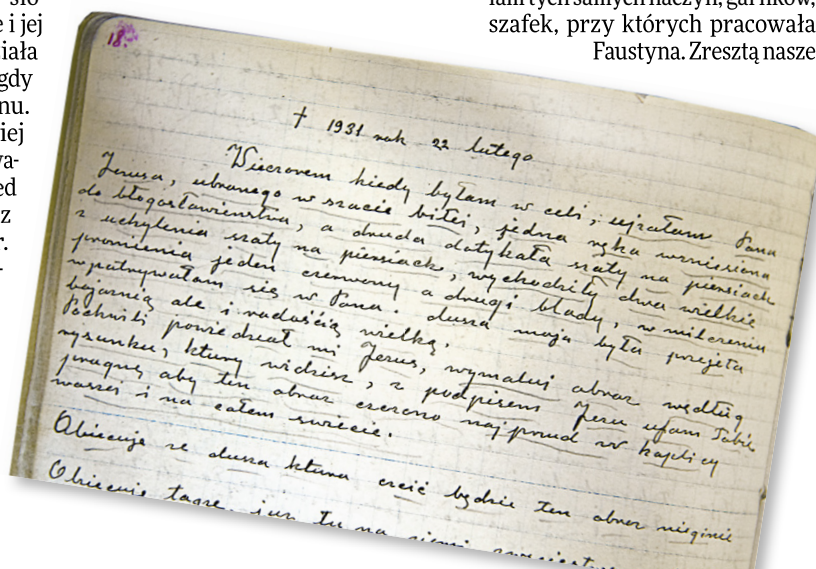 sło
e i jej
ciała
gdy
nu.
iej
wa-
ed
z
r.
-
łam tych samych naczyń, garnków,
szafek, przy których pracowała
Faustyna. Zresztą nasze
18.
† 1931 rok 22 lutego
Wieczorem kiedy byłam w celi, ujrzałam Pana
Jezusa, ubranego w szacie biłej, jedna ręka wzniesiona
do błogosławieństwa, a druda dotykała szaty na piersiach
z uchylenia szaty na piersiach, wychodziły dwa wielkie
promienia jeden czerwony a drugi blady, w milczeniu
wpatrywałam się w Pana. dusza moja była przejęta
bojaźnią ale i radością wielką.
Pochwili powiedział mi Jezus, wymaluj obraz według
rysunku, ktury widzisz, z podpisem Jezu ufam Tobie
pragnę aby ten obraz czczono najprzud w kaplicy
waszej i na całem świecie.
Obiecuję ze dusza ktura czcić będzie ten obraz nieginie
Obiecuję tagże, już tu na ziemi